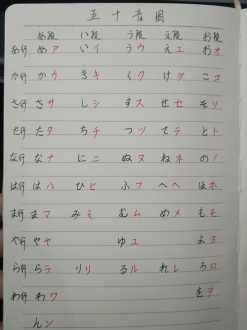 五十音図
あ段 い段 う段 え段 お段
あ行 あア いイ うウ えエ おオ
か行 かカ きキ くク けケ こコ
さ行 さサ しシ すス せセ そソ
た行 たタ ちチ つツ てテ とト
な行 なナ にニ ぬヌ ねネ のノ
は行 はハ ひヒ ふフ へヘ ほホ
ま行 まマ みミ むム めメ もモ
や行 やヤ ゆユ よヨ
ら行 らラ りリ るル れレ ろロ
わ行 わワ をヲ
んン